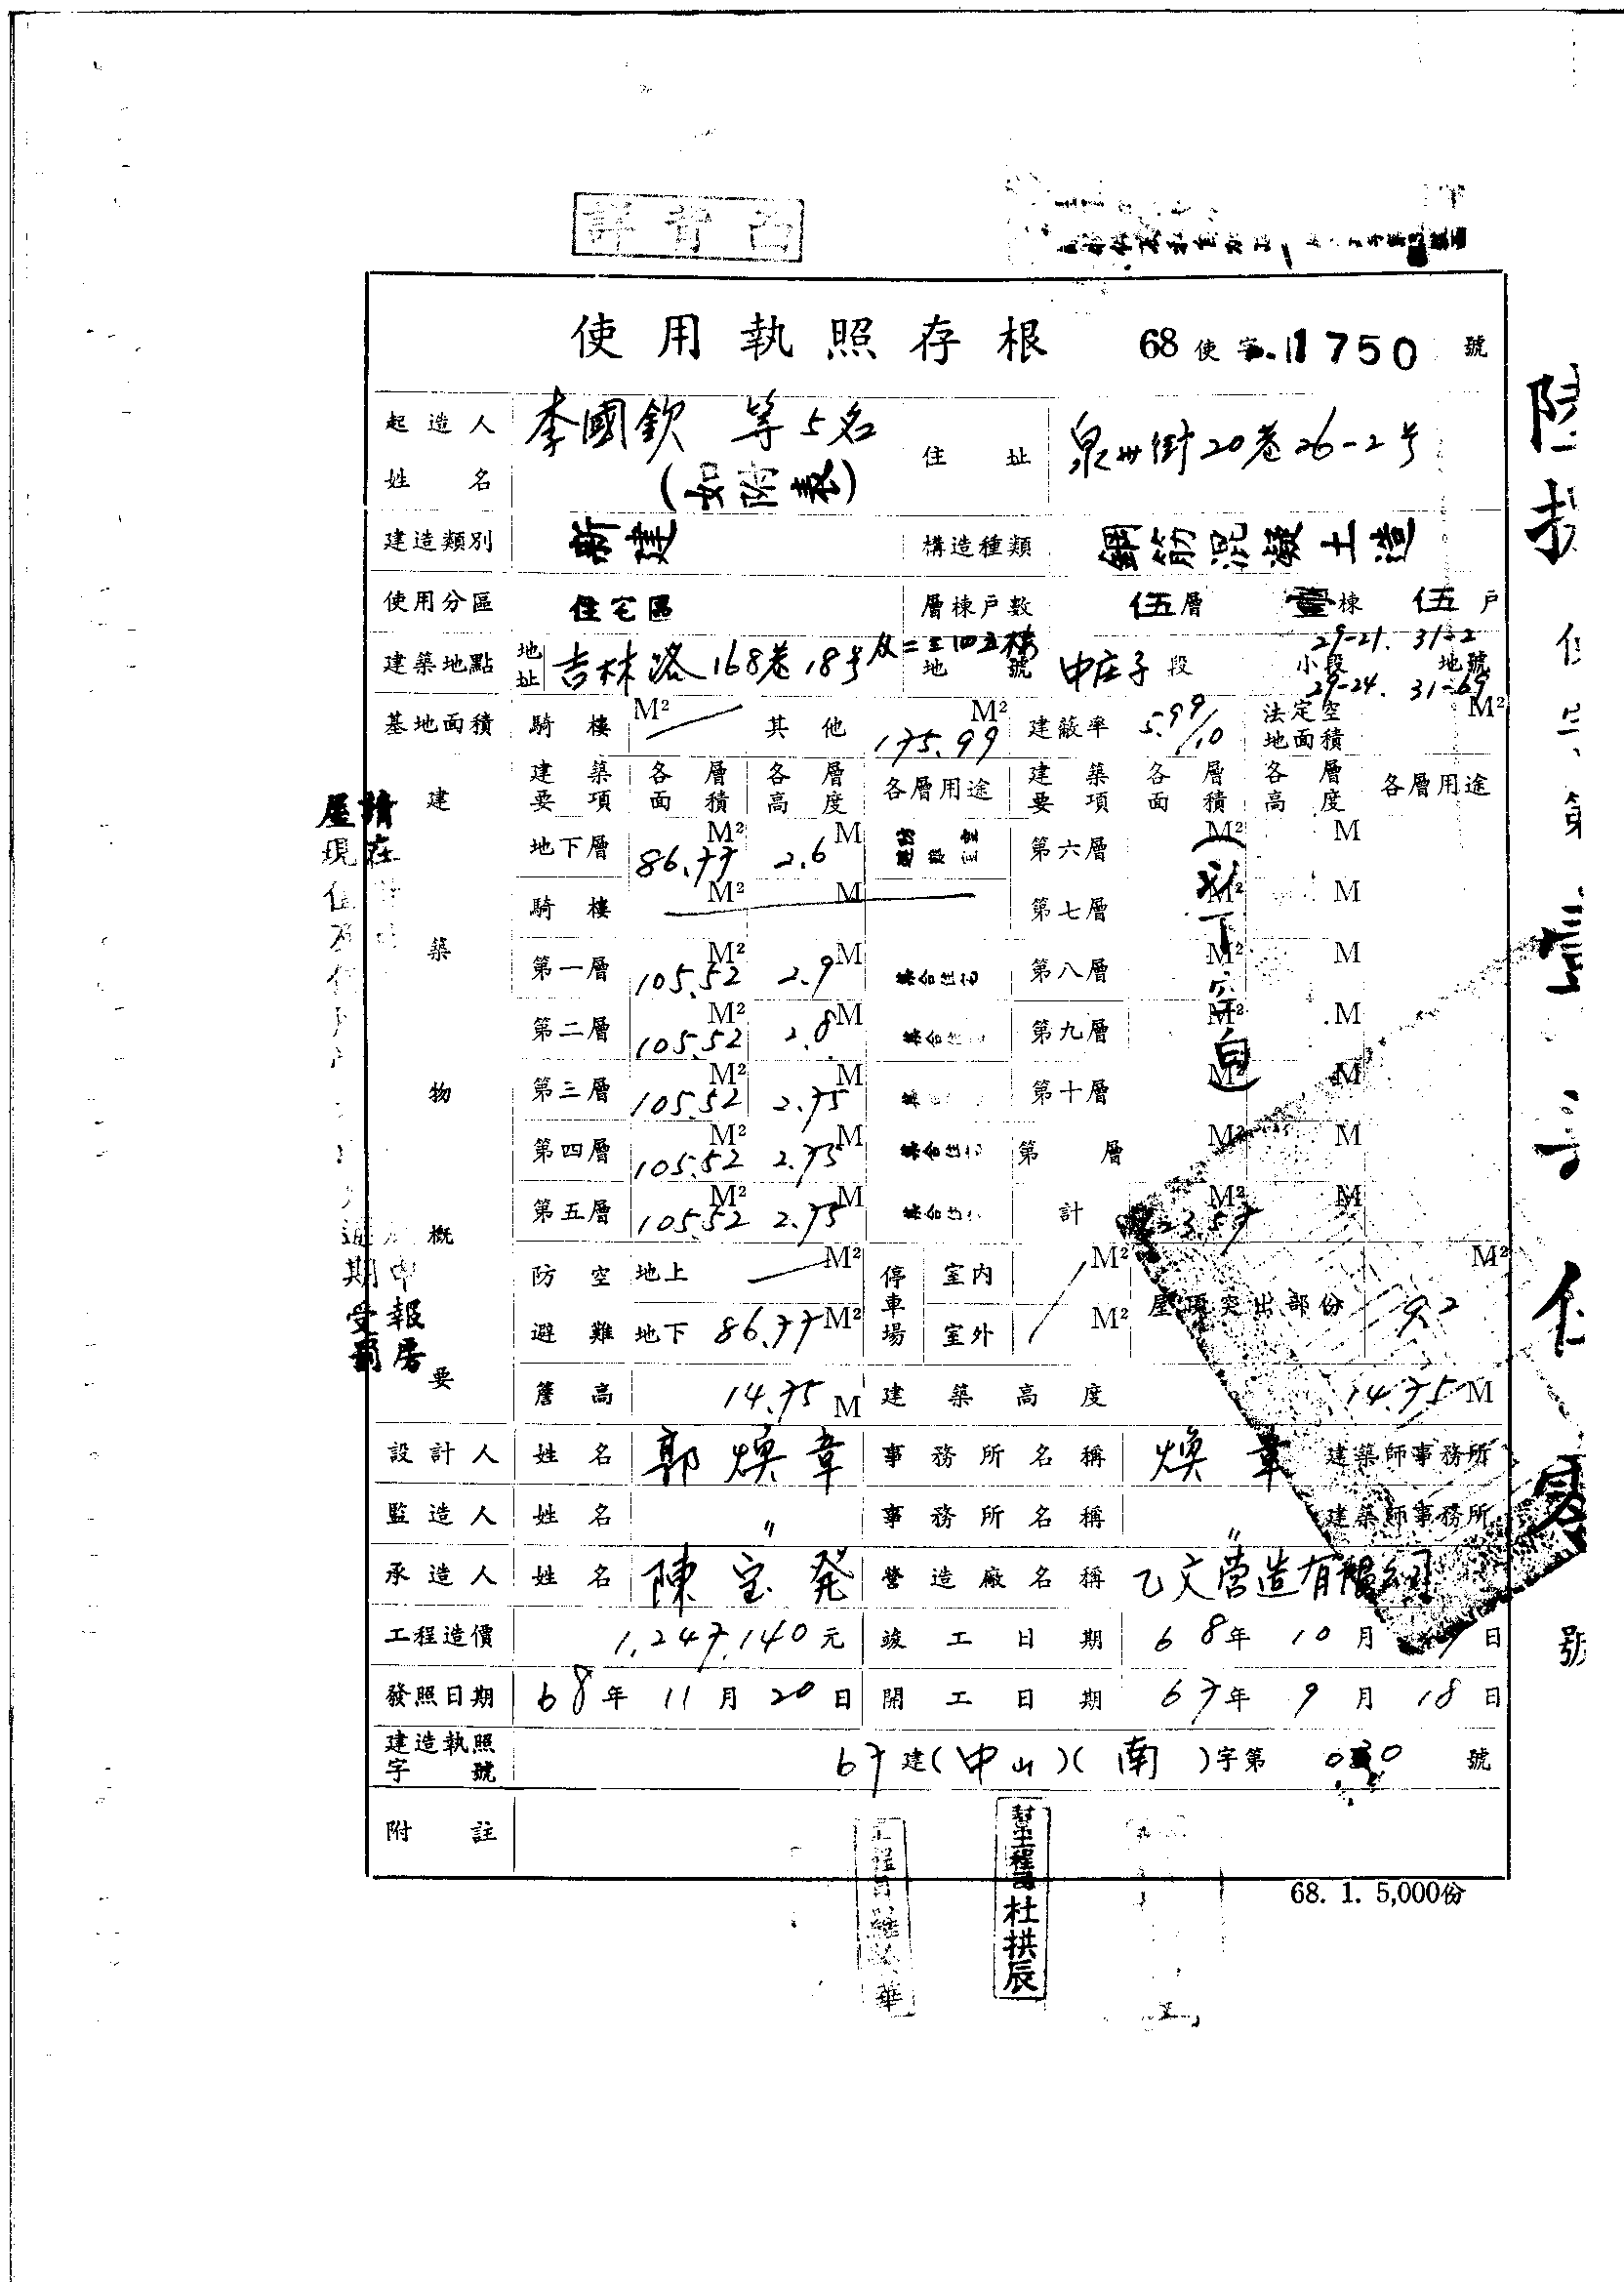 使用執照存根 68使字 1750 號
起造人姓名 李國欽 等5名 (如附表) 住址 泉州街20巷26-2号
建造類別 新建 構造種類 鋼筋混凝土造
使用分區 住宅區 層棟戶數 伍層 壹棟 伍戶
建築地點 地址 吉林路168巷18号及二三四五樓 地號 中庄子段 小段 29-21. 31-2 29-24. 31-69 地號
基地面積 騎樓 M² 其他 175.99 M² 建蔽率 5.99/10 法定空地面積 M²
建築物概要
建築要項 各層面積 各層高度 各層用途 建築要項 各層面積 各層高度 各層用途
地下層 86.77 M² 2.6 M 第六層 M² M
騎樓 M² M 第七層 M² M
第一層 105.52 M² 2.9 M 第八層 M² M
第二層 105.52 M² 2.8 M 第九層 M² M
第三層 105.52 M² 2.75 M 第十層 M² M
第四層 105.52 M² 2.75 M 第 層 M² M
第五層 105.52 M² 2.75 M 計 M² M
(以下空白)
防空避難 地上 M² 停車場 室內 M² 屋頂突出部份 M²
地下 86.77 M² 室外 M²
簷高 14.75 M 建築高度 14.75 M
設計人 姓名 郭煥章 事務所名稱 煥章 建築師事務所
監造人 姓名 〃 事務所名稱 〃 建築師事務所
承造人 姓名 陳宝発 營造廠名稱 乙文營造有限公司
工程造價 1,247,140元 竣工日期 68年10月 日
發照日期 68年11月20日 開工日期 67年9月18日
建造執照字號 67建(中山)(南)字第 號
附註
68. 1. 5,000份
杜拱辰